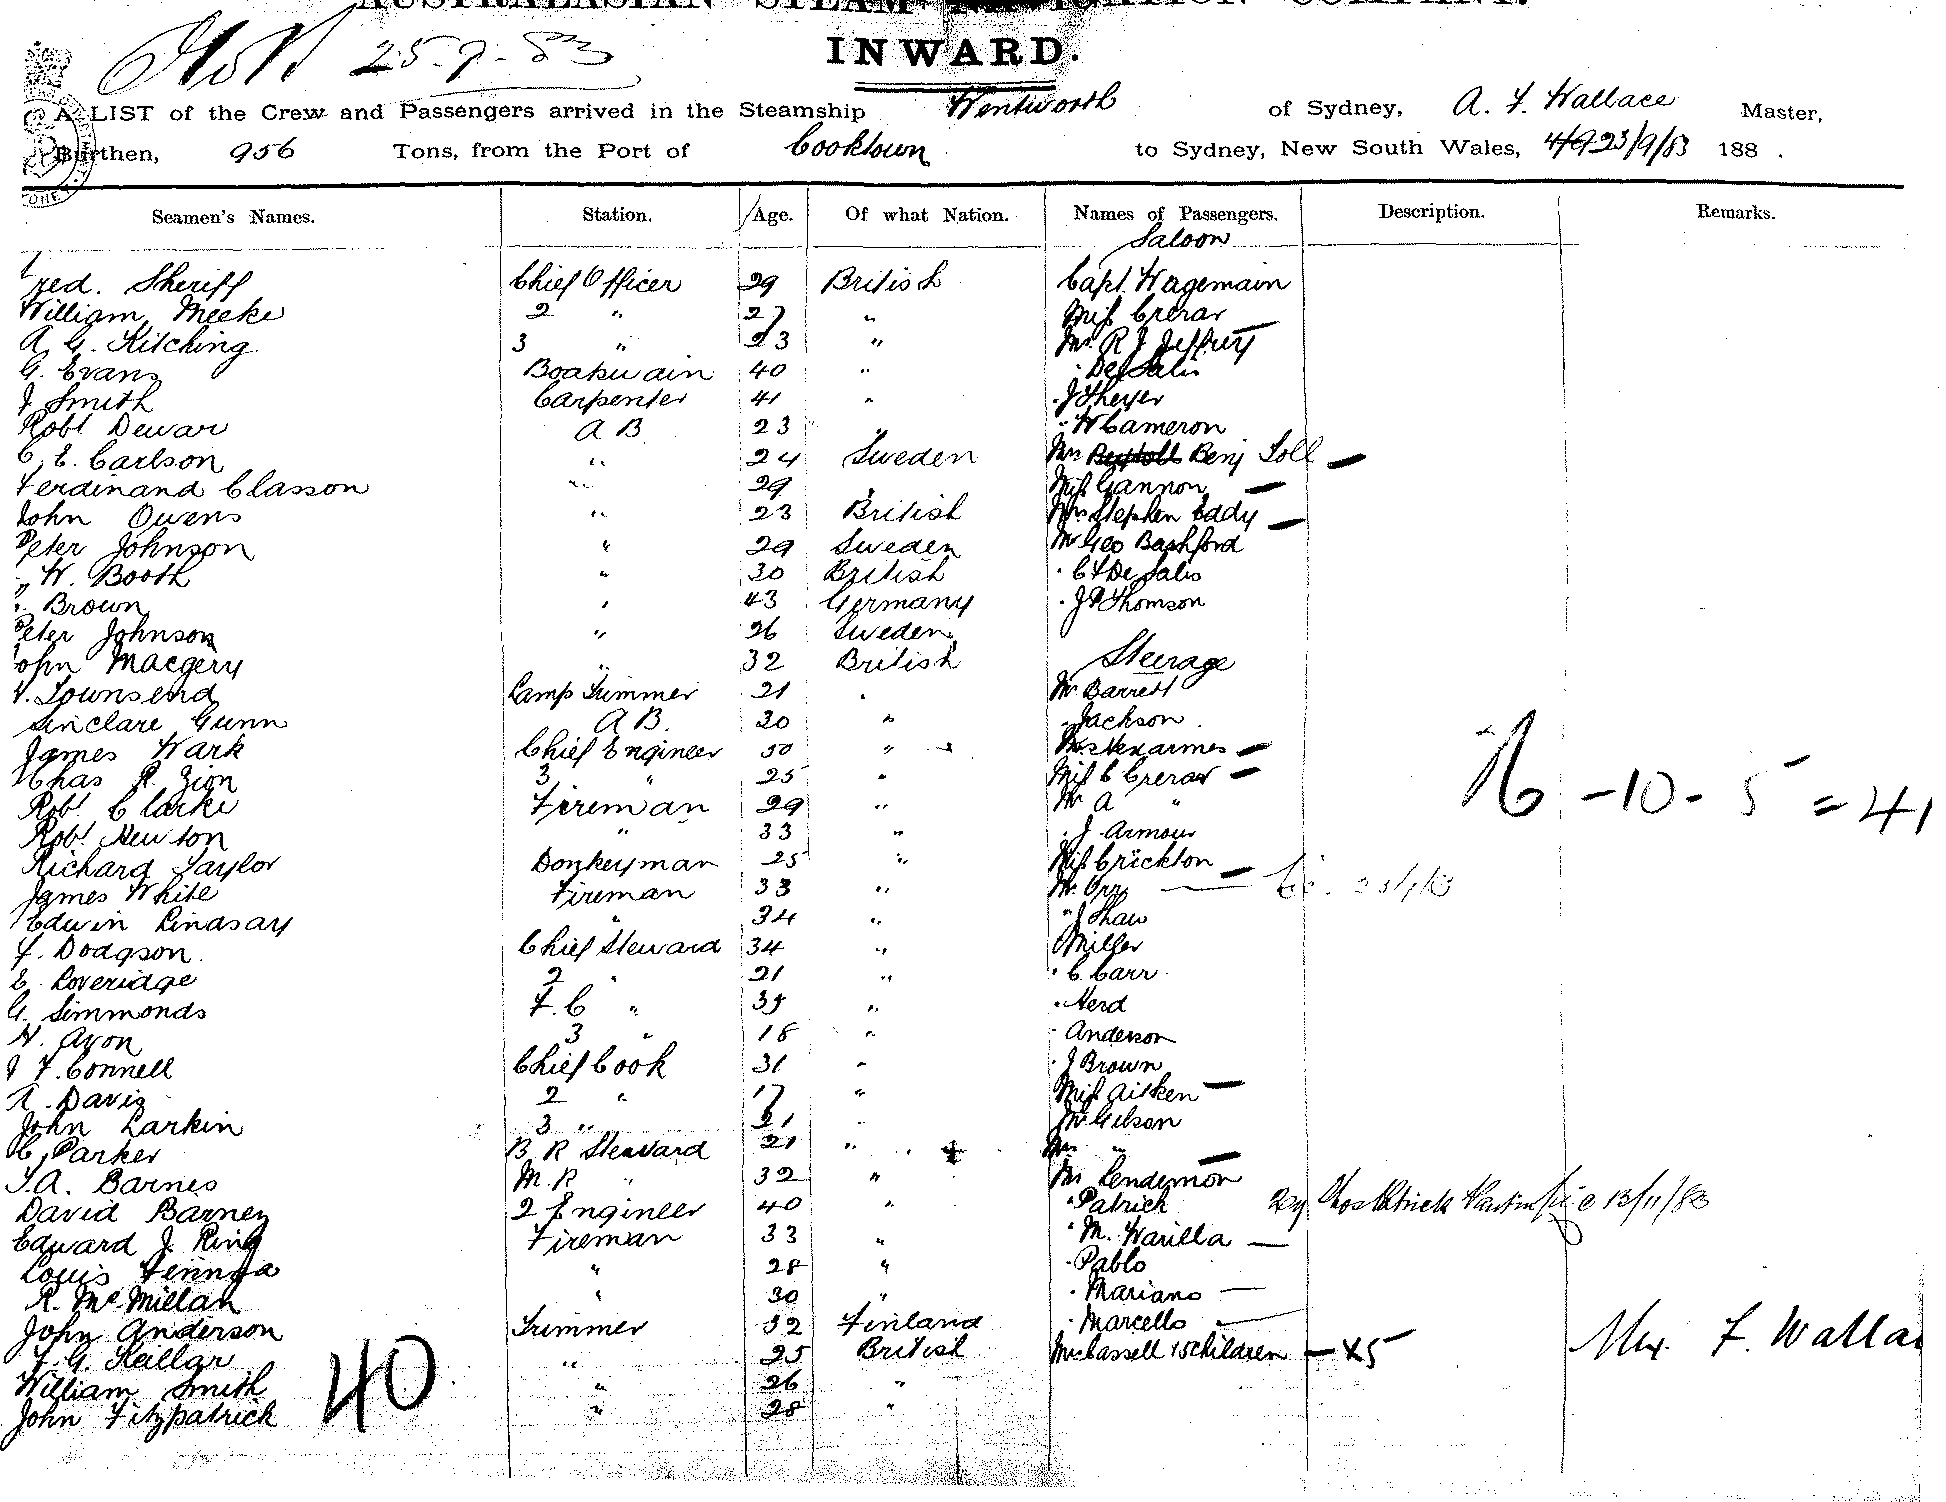 AUSTRALASIAN STEAM NAVIGATION COMPANY.
25.9.83
INWARD.
A LIST of the Crew and Passengers arrived in the Steamship Wentworth of Sydney, A. F. Wallace Master,
Burthen, 956 Tons, from the Port of Cooktown to Sydney, New South Wales, 23/9/83 188 .
Seamen's Names. Station. Age. Of what Nation. Names of Passengers. Description. Remarks.
Saloon
red. Sheriff Chief Officer 29 British Capt. Wagemain
William Meeke 2 " 27 " Miss Crerar
A. G. Kitching 3 " 23 " Mr R J Jeffrey
G. Evans Boatswain 40 " " De Salis
J Smith Carpenter 41 " " J Sheyer
Robt Dewar A B 23 " " W Cameron
C. E. Carlson " 24 Sweden Mrs Benj Toll —
Ferdinand Classon " 29 " Miss Gannon —
John Owens " 23 British Mrs Stephen Eddy —
Peter Johnson " 29 Sweden Mr Geo Bashford
W. Booth " 30 British " C F De Salis
Brown " 43 Germany " J P Thomson
Peter Johnson " 26 Sweden
John Macgery " 32 British Steerage
Townsend Lamp Trimmer 21 " Mr Barrett
Sinclare Gunn A B. 20 " " Jackson
James Wark Chief Engineer 50 " —
Chas R. Zion 3 " 25 " Miss C Crerar —
Robt Clarke Fireman 29 " Mr A "
Robt Newton " 33 " " J Armour
Richard Taylor Donkeyman 25 " Miss Crickton —
James White Fireman 33 " Mr Orr —
Edwin Lindsay " 34 " " J Shaw
F. Dodgson Chief Steward 34 " Miller
E. Loveridge 2 " 21 " " C. Carr
G. Simmonds F. C " 35 " " Herd
Avon 3 " 18 " " Anderson
J F. Connell Chief Cook 31 " " J Brown
A. Davis 2 " 17 " Miss Aitken —
John Larkin 3 " 21 " Mr Gilson
C. Parker B R Steward 21 " Mrs " —
T. A. Barnes M. R " 32 " Mr Lendemon
David Barney 2 Engineer 40 " " Patrick 13/11/83
Edward J. Ring Fireman 33 " " M. Warilla —
Louis " 28 " " Pablo
R. McMillan " 30 " " Mariano —
John Anderson Trimmer 32 Finland " Marcello —
F. G. Keillar " 25 British Mrs Cassell & 5 children — x5
William Smith " 26 "
John Fitzpatrick " 28 "
40
-10-5=41
Alex. F. Walla